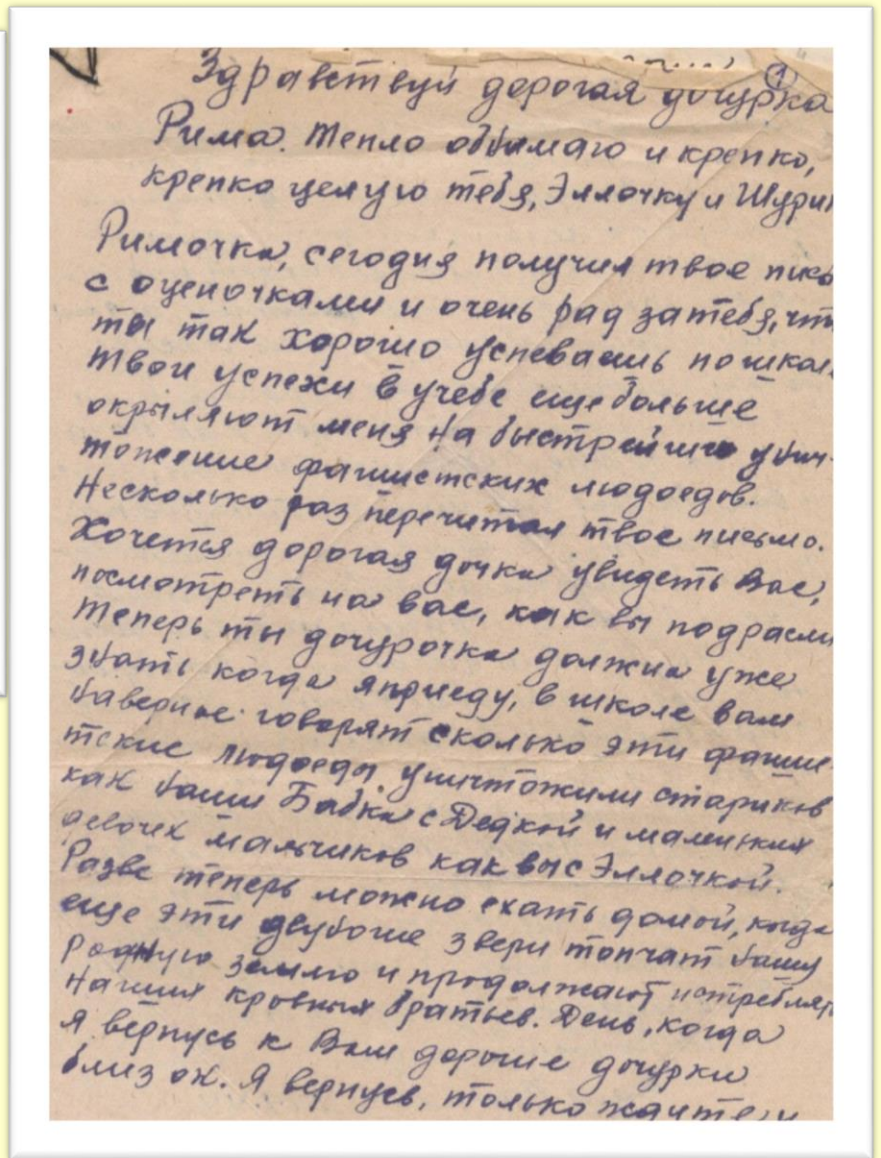 ①
Здравствуй дорогая дочурка
Рима. Тепло обнимаю и крепко,
крепко целую тебя, Эллочку и Шурик
Римочка, сегодня получил твое пись
с оценочками и очень рад за тебя, что
ты так хорошо успеваешь по школе
Твои успехи в учебе еще больше
окрыляют меня на быстрейшее унич-
тожение фашистских людоедов.
Несколько раз перечитал твое письмо.
Хочется дорогая дочка увидеть Вас,
посмотреть на вас, как вы подрасли
Теперь ты дочурочка должна уже
знать когда я приеду, в школе вам
наверное говорят сколько эти фашис-
тские людоеды уничтожили стариков
как наши Бабка с Дедкой и маленьких
девочек мальчиков как вы с Эллочкой.
Разве теперь можно ехать домой, когда
еще эти двуногие звери топчат нашу
родную землю и продолжают истреблять
наших кровных братьев. День, когда
я вернусь к Вам дорогие дочурки
близок. Я вернусь, только ждите и